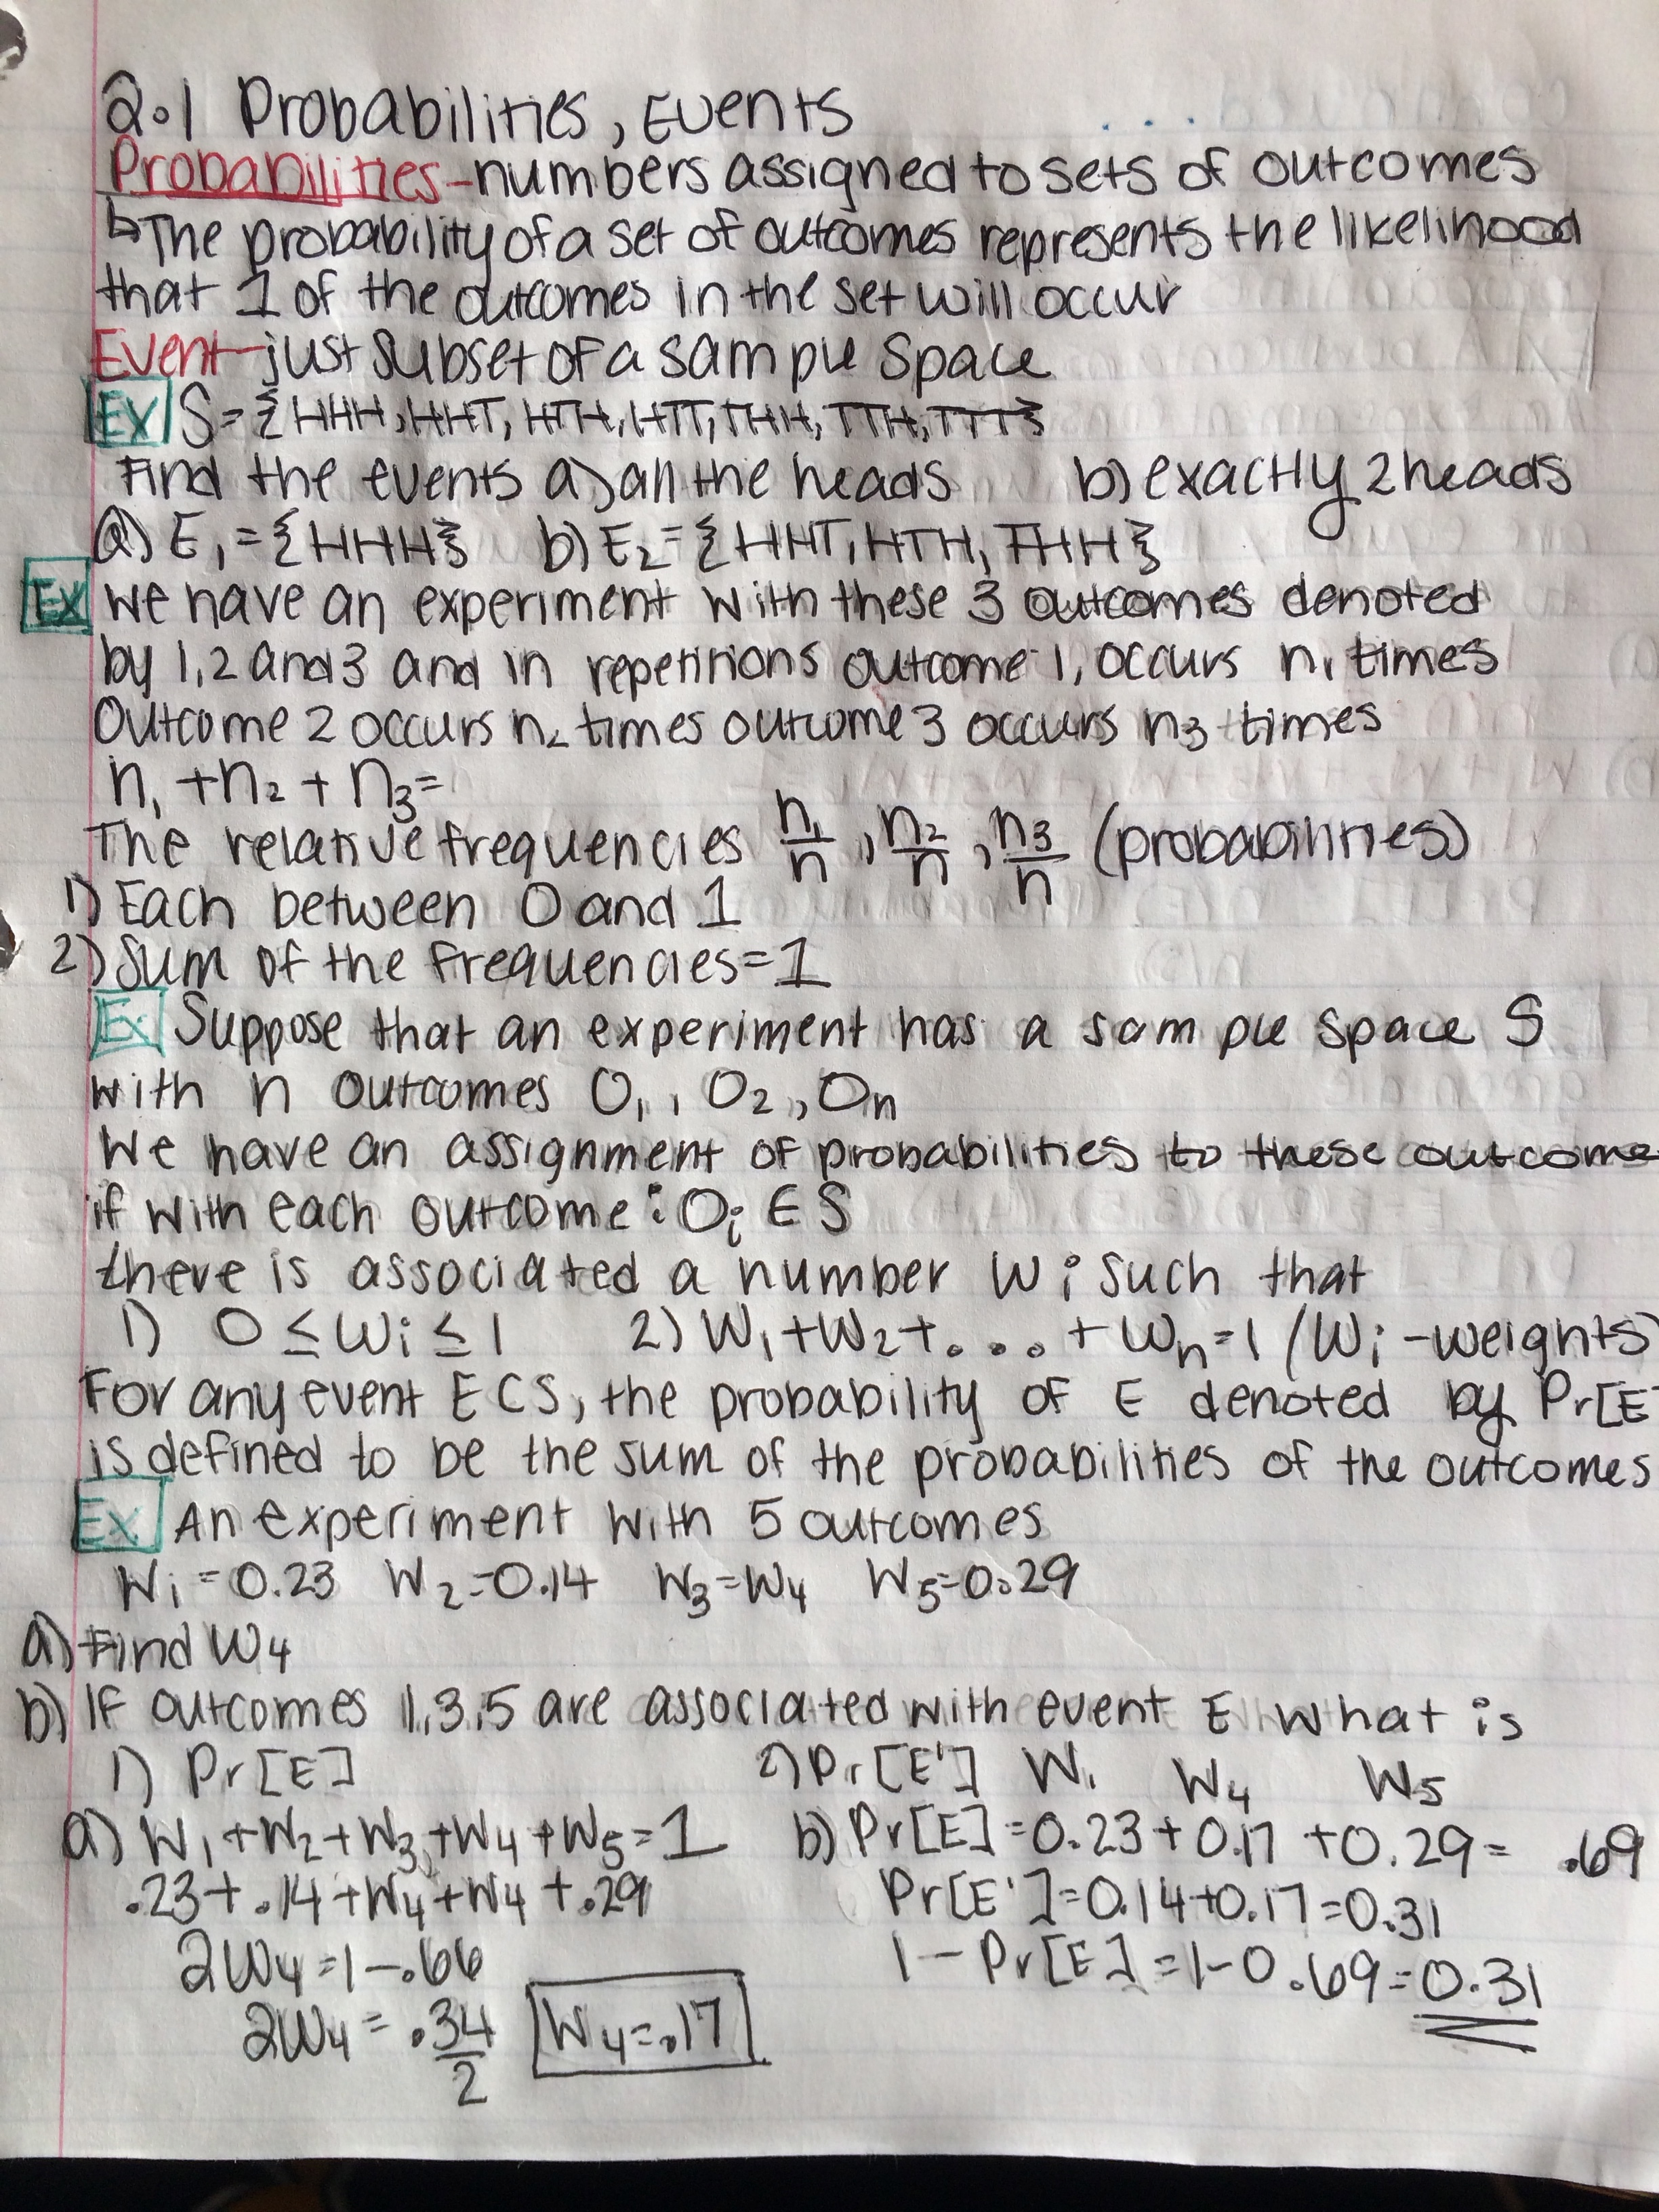 2.1 Probabilities, Events
Probabilities - numbers assigned to sets of outcomes
↳The probability of a set of outcomes represents the likelihood
that 1 of the outcomes in the set will occur
Event - just subset of a sample space
Ex S={HHH, HHT, HTH, HTT, THH, TTH, TTT}
Find the events a) all the heads b) exactly 2 heads
a) E₁ = {HHH} b) E₂ = {HHT, HTH, THH}
Ex We have an experiment with these 3 outcomes denoted
by 1, 2 and 3 and in repetitions outcome 1, occurs n₁ times
Outcome 2 occurs n₂ times outcome 3 occurs n₃ times
n₁ + n₂ + n₃=
The relative frequencies n₁/n, n₂/n, n₃/n (probabilities)
1) Each between 0 and 1
2) Sum of the frequencies=1
Ex Suppose that an experiment has a sample space S
with n outcomes O₁, O₂, Oₙ
We have an assignment of probabilities to these outcome
if with each outcome: Oᵢ ∈ S
there is associated a number Wi such that
1) 0 ≤ Wi ≤ 1 2) W₁+W₂+...+Wₙ=1 (Wi - weights)
For any event E⊂S, the probability of E denoted by Pr[E
is defined to be the sum of the probabilities of the outcomes
Ex An experiment with 5 outcomes
W₁=0.23 W₂=0.14 W₃=W₄ W₅=0.29
a) Find W₄
b) If outcomes 1,3,5 are associated with event E what is
1) Pr[E] 2) Pr[E'] W₁ W₄ W₅
a) W₁+W₂+W₃+W₄+W₅=1 b) Pr[E]=0.23+0.17+0.29= .69
.23+.14+W₄+W₄+.29 Pr[E']=0.14+0.17=0.31
2W₄=1-.66 1-Pr[E]=1-0.69=0.31
2W₄=.34/2 W₄=.17